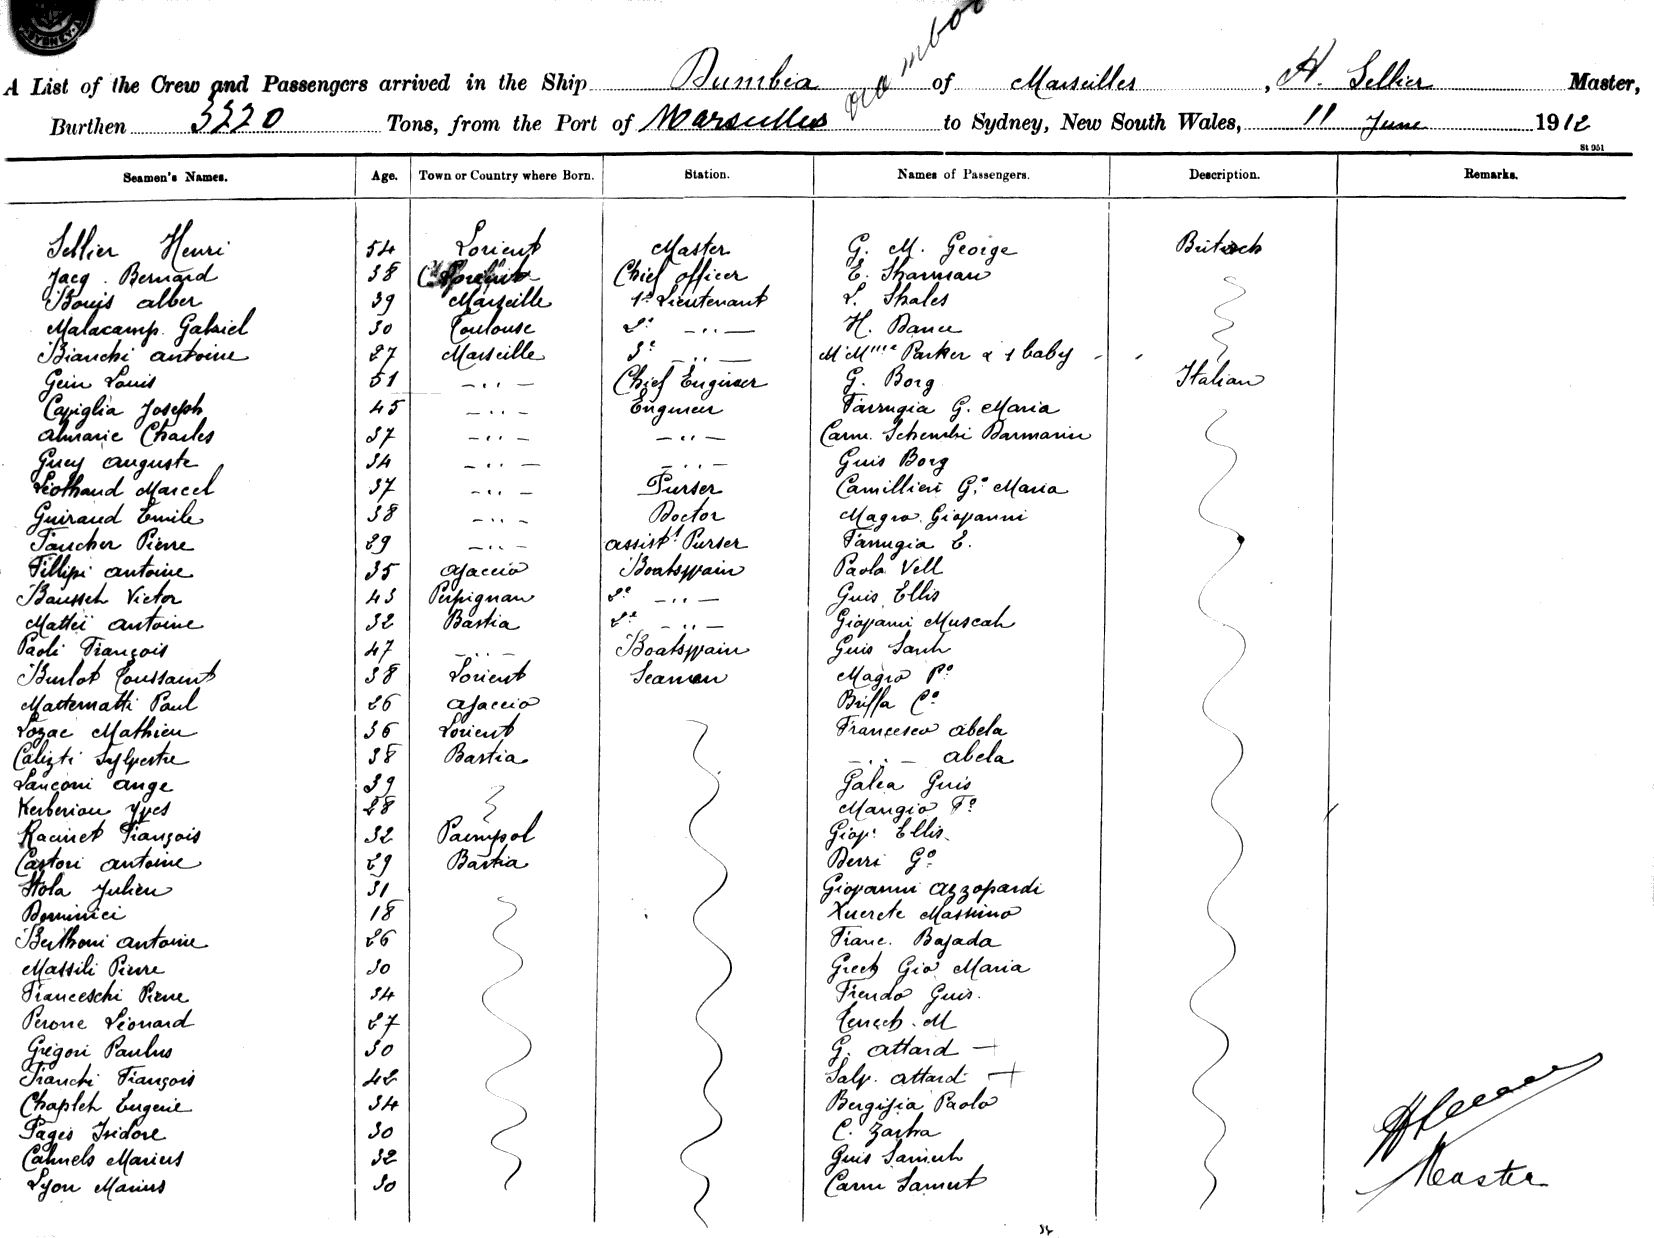 SYDNEY
A List of the Crew and Passengers arrived in the Ship Dumbea of Marseilles, H. Sellier Master,
Burthen 3220 Tons, from the Port of Marseilles via Bombay to Sydney, New South Wales, 11 June 1912
St 951
Seamen's Names. Age. Town or Country where Born. Station. Names of Passengers. Description. Remarks.
Sellier Henri 54 Lorient Master G. M. George British
Jacq. Bernard 38 Chief officer E. Sharman
Bouis alber 39 Marseille 1º Lieutenant L. Shales
Malacamp. Gabriel 30 Toulouse 2º -..- H. Dance
Bianchi antoine 27 Marseille 3º -..- M Mme Parker & 1 baby
Gein Louis 51 -..- Chief Engineer G. Borg Italian
Capiglia Joseph 45 -..- Engineer Farrugia G. Maria
almaric Charles 37 -..- -..- Carm. Schembri Darmanin
Guey auguste 34 -..- -..- Guis Borg
Liothaud Marcel 37 -..- Purser Camillieri Gº Maria
Guiraud Emile 38 -..- Doctor Magro Giovanni
Faucher Pierre 29 -..- assistt Purser Farrugia E.
Fillipi antoine 35 ajaccio Boatswain Paolo Vell
Baussch Victor 43 Perpignan 2º -..- Guis Ellis
Mattei antoine 32 Bastia 2º -..- Giovanni Muscah
Paoli François 47 -..- Boatswain Guis
Burlot Toussaint 38 Lorient Seaman Magro Pº
Masternatti Paul 26 ajaccio Briffa Cº
Lozac Mathieu 36 Lorient Francesco abela
Calizti Sylvestre 38 Bastia -..- abela
Lanconi ange 39 Galea Guis
Kerberiou Yves 28 Mangio Fº
Racinet François 32 Paimpol Giov. Ellis
Castori antoine 29 Bastia Berri Gº
Stola Julien 31 Giovanni azzopardi
Dominici 18 Xuereb Massimo
Berthoni antoine 26 Franc. Bajada
Massili Pierre 30 Grech Gio Maria
Franceschi Pierre 34 Frendo Guis.
Perone Léonard 27 M
Grégori Paulus 30 G. attard
Franchi François 42 Salv. attard
Chapleh Eugenie 34 Paolo
Pagès Isidore 30 C. Zarha
Cahuels Marius 32 Guis Samut
Lyon Marius 30 Carm Samut
Master
34